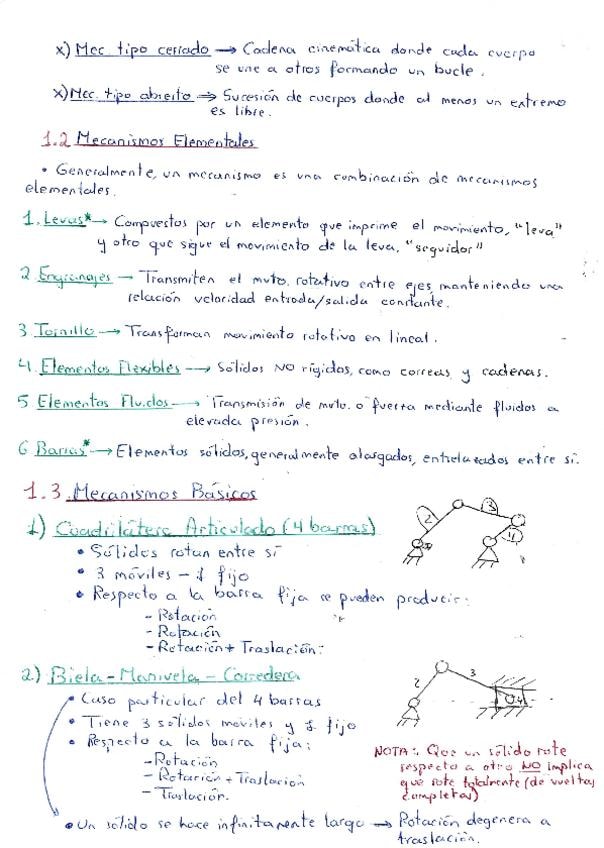 x) Mec. tipo cerrado → Cadena cinemática donde cada cuerpo
se une a otros formando un bucle.
x) Mec. tipo abierto → Sucesión de cuerpos donde al menos un extremo
es libre.
1.2 Mecanismos Elementales
• Generalmente, un mecanismo es una combinación de mecanismos
elementales.
1. Levas* → Compuestos por un elemento que imprime el movimiento, "leva"
y otro que sigue el movimiento de la leva, "seguidor"
2 Engranajes → Transmiten el mvto. rotativo entre ejes, manteniendo una
relación velocidad entrada/salida constante.
3 Tornillo → Transforman movimiento rotativo en lineal.
4. Elementos Flexibles → Sólidos NO rígidos, como correas y cadenas.
5 Elementos Fluidos → Transmisión de mvto. o fuerza mediante fluidos a
elevada presión.
6 Barras* → Elementos sólidos, generalmente alargados, entrelazados entre sí.
1.3. Mecanismos Básicos
1) Cuadrilátero Articulado (4 barras)
2 3 4
• Sólidos rotan entre sí
• 3 móviles - 1 fijo
• Respecto a la barra fija se pueden producir:
- Rotación
- Rotación
- Rotación + Traslación
2) Biela - Manivela - Corredera
2 3 4
• Caso particular del 4 barras
• Tiene 3 sólidos móviles y 1 fijo
• Respecto a la barra fija:
- Rotación
- Rotación + Traslación
- Traslación.
NOTA: Que un sólido rote
respecto a otro NO implica
que rote totalmente (de vueltas
completas)
• Un sólido se hace infinitamente largo → Rotación degenera a
traslación.